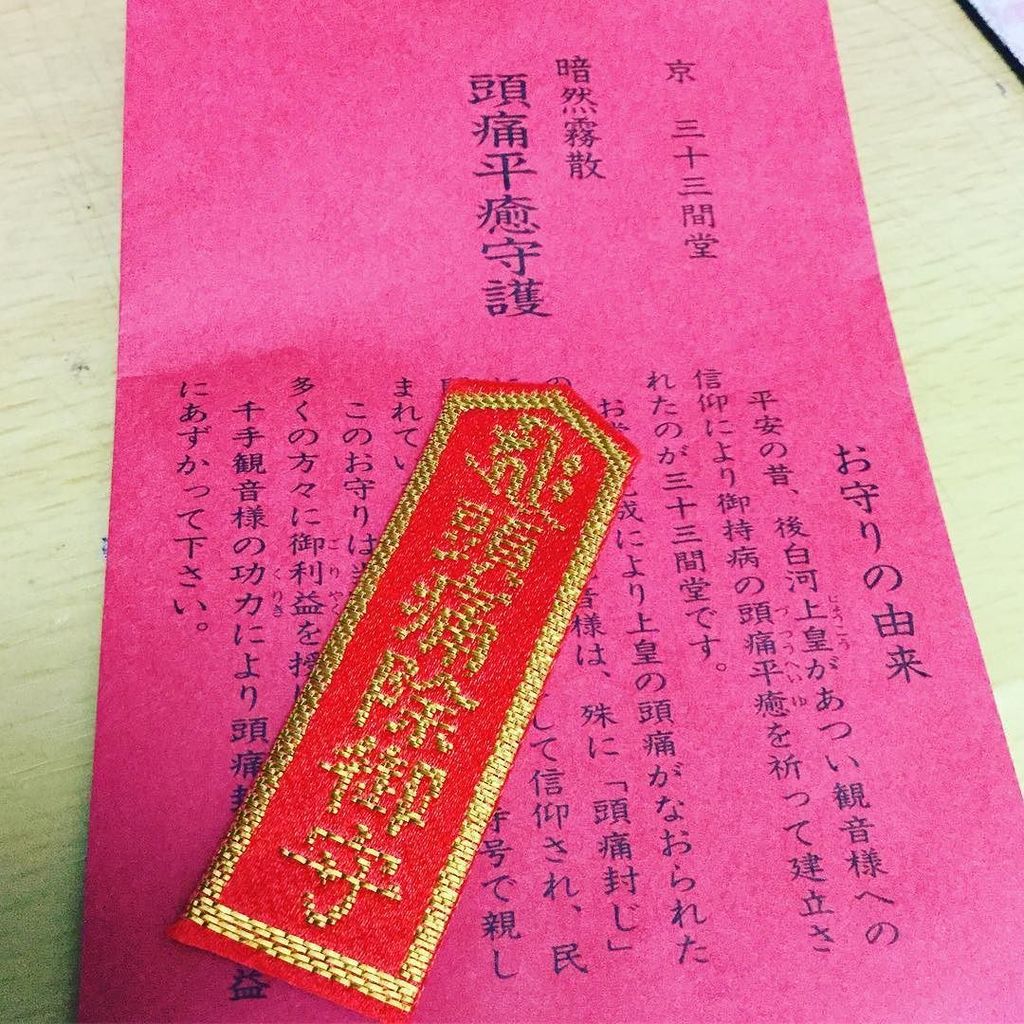 京 三十三間堂
暗然霧散
頭痛平癒守護
お守りの由来
平安の昔、後白河上皇があつい観音様への
じょうこう
信仰により御持病の頭痛平癒を祈って建立さ
づつうへいゆ
れたのが三十三間堂です。
により上皇の頭痛がなおられた
音様は、殊に「頭痛封じ」
して信仰され、民
寺号で親し
まれてい
このお守りは
多くの方々に御利益を授
ごりやく
千手観音様の功力により頭痛
くりき
益
にあずかって下さい。
頭痛除御守